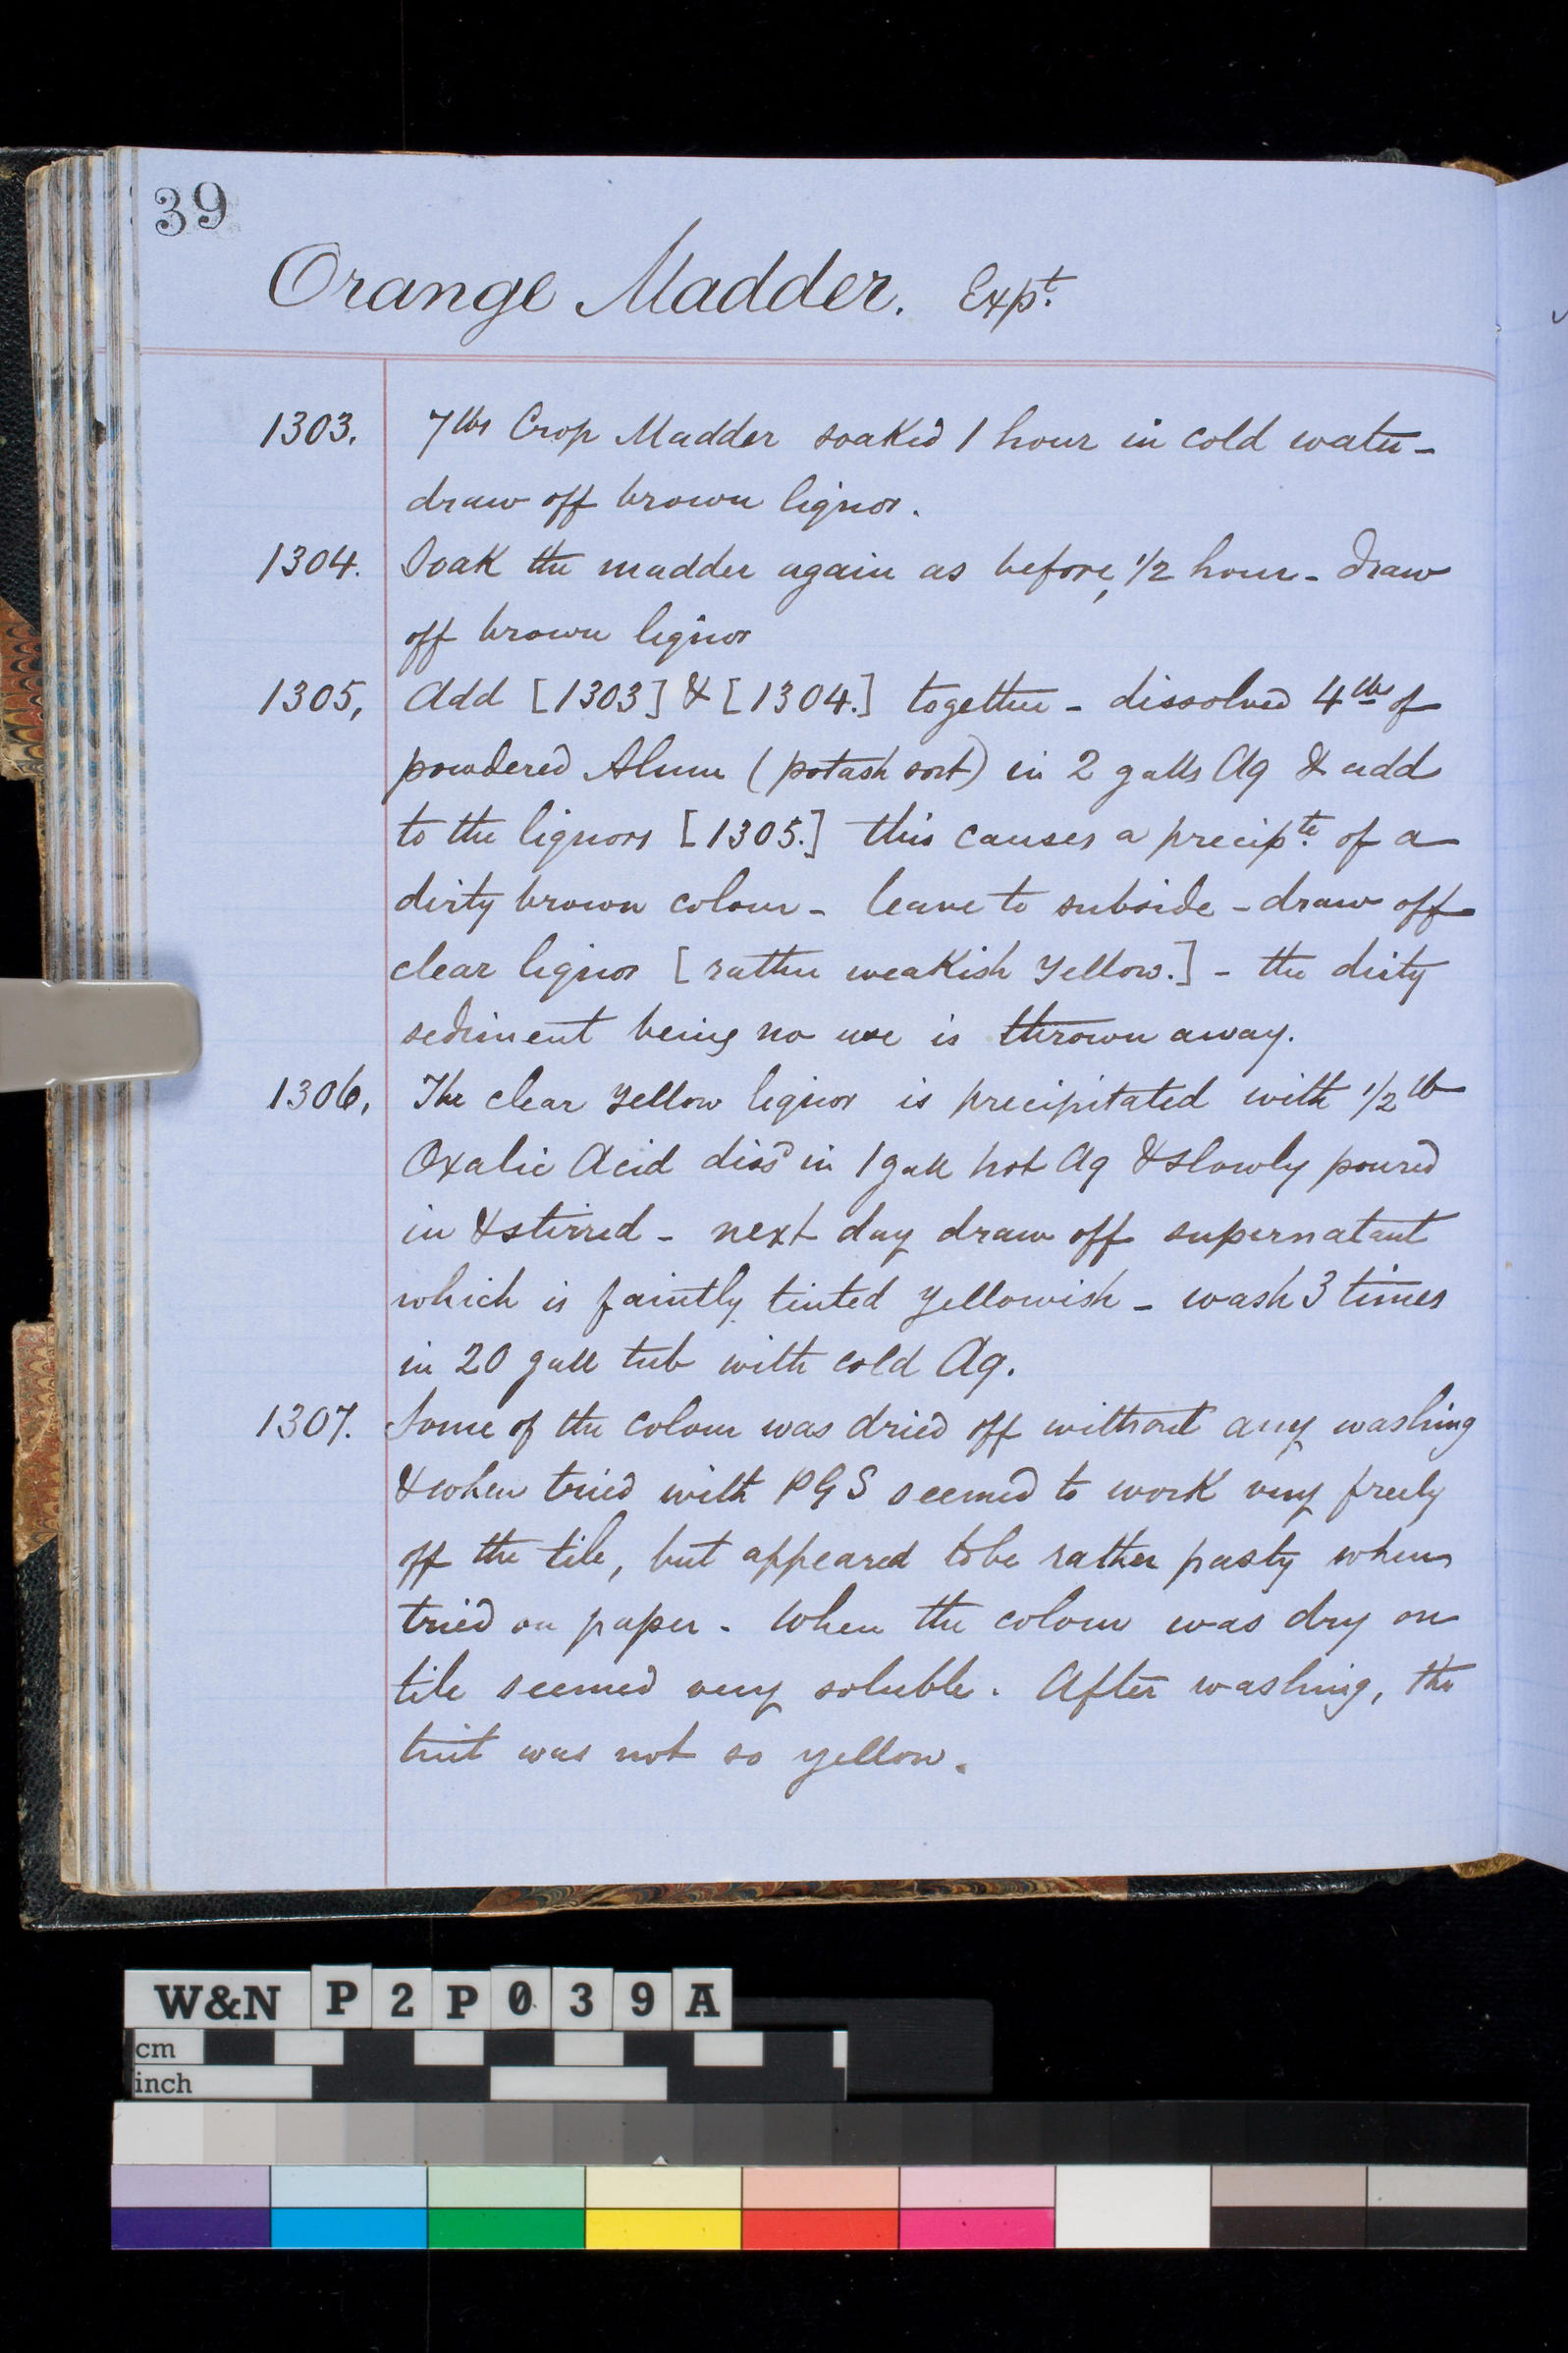 39
Orange Madder. Expt.
1303. 7lbs Crop Madder soaked 1 hour in cold water -
draw off brown liquor.
1304. Soak the madder again as before, 1/2 hour - draw
off brown liquor
1305, Add [1303] & [1304.] together - dissolved 4lbs of
powdered Alum (potash sort) in 2 galls Aq & add
to the liquors [1305.] this causes a precipte. of a
dirty brown colour - leave to subside - draw off
clear liquor [rather weakish Yellow.] - the dirty
sediment being no use is thrown away.
1306, The clear Yellow liquor is precipitated with 1/2 lb
Oxalic Acid dissd in 1 gall hot Aq & slowly poured
in & stirred - next day draw off supernatant
which is faintly tinted yellowish - wash 3 times
in 20 gall tub with cold Aq.
1307. Some of the colour was dried off without any washing
& when tried with PGS seemed to work very freely
off the tile, but appeared to be rather pasty when
tried on paper. When the colour was dry on
tile seemed very soluble. After washing, the
tint was not so yellow.
W&N P2P039A
cm
inch